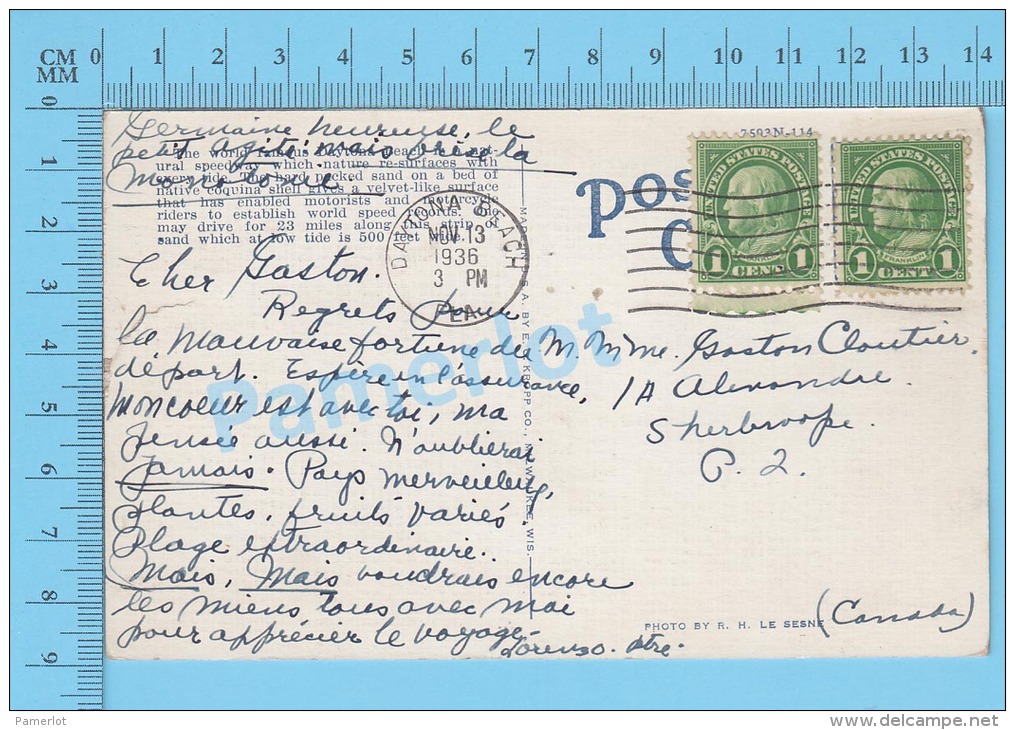 CM
MM
0 1 2 3 4 5 6 7 8 9 10 11 12 13 14
0 1 2 3 4 5 6 7 8 9
Germaine heureuse, le
petit agité, mais la
The world famous Daytona Beach is a nat-
ural speedway which nature re-surfaces with
every tide. The hard packed sand on a bed of
native coquina shell gives a velvet-like surface
that has enabled motorists and motorcycle
riders to establish world speed records. One
may drive for 23 miles along this strip of
sand which at low tide is 500 feet wide.
7593N-114
POS
C
UNITED STATES POSTAGE
FRANKLIN
1 CENT 1
UNITED STATES POSTAGE
FRANKLIN
1 CENT 1
DAYTONA BEACH
NOV 13
1936
3 PM
FLA.
Cher Gaston.
Regrets pour
la mauvaise fortune du
départ. Espère en l'assurance,
Mon coeur est avec toi, ma
pensée aussi. N'oublierai
Jamais. Pays merveilleux,
plantes, fruits variés,
Plage extraordinaire.
Mais, Mais voudrais encore
les miens tous avec moi
pour apprécier le voyage
Lorenzo. ptre.
MADE U.S.A. BY E. C. KROPP CO., MILWAUKEE, WIS.
M. Mme. Gaston Cloutier.
1A Alexandre.
Sherbrooke.
P. Q.
(Canada)
PHOTO BY R. H. LE SESNE
Pamerlot
Pamerlot
http://www.delcampe.net